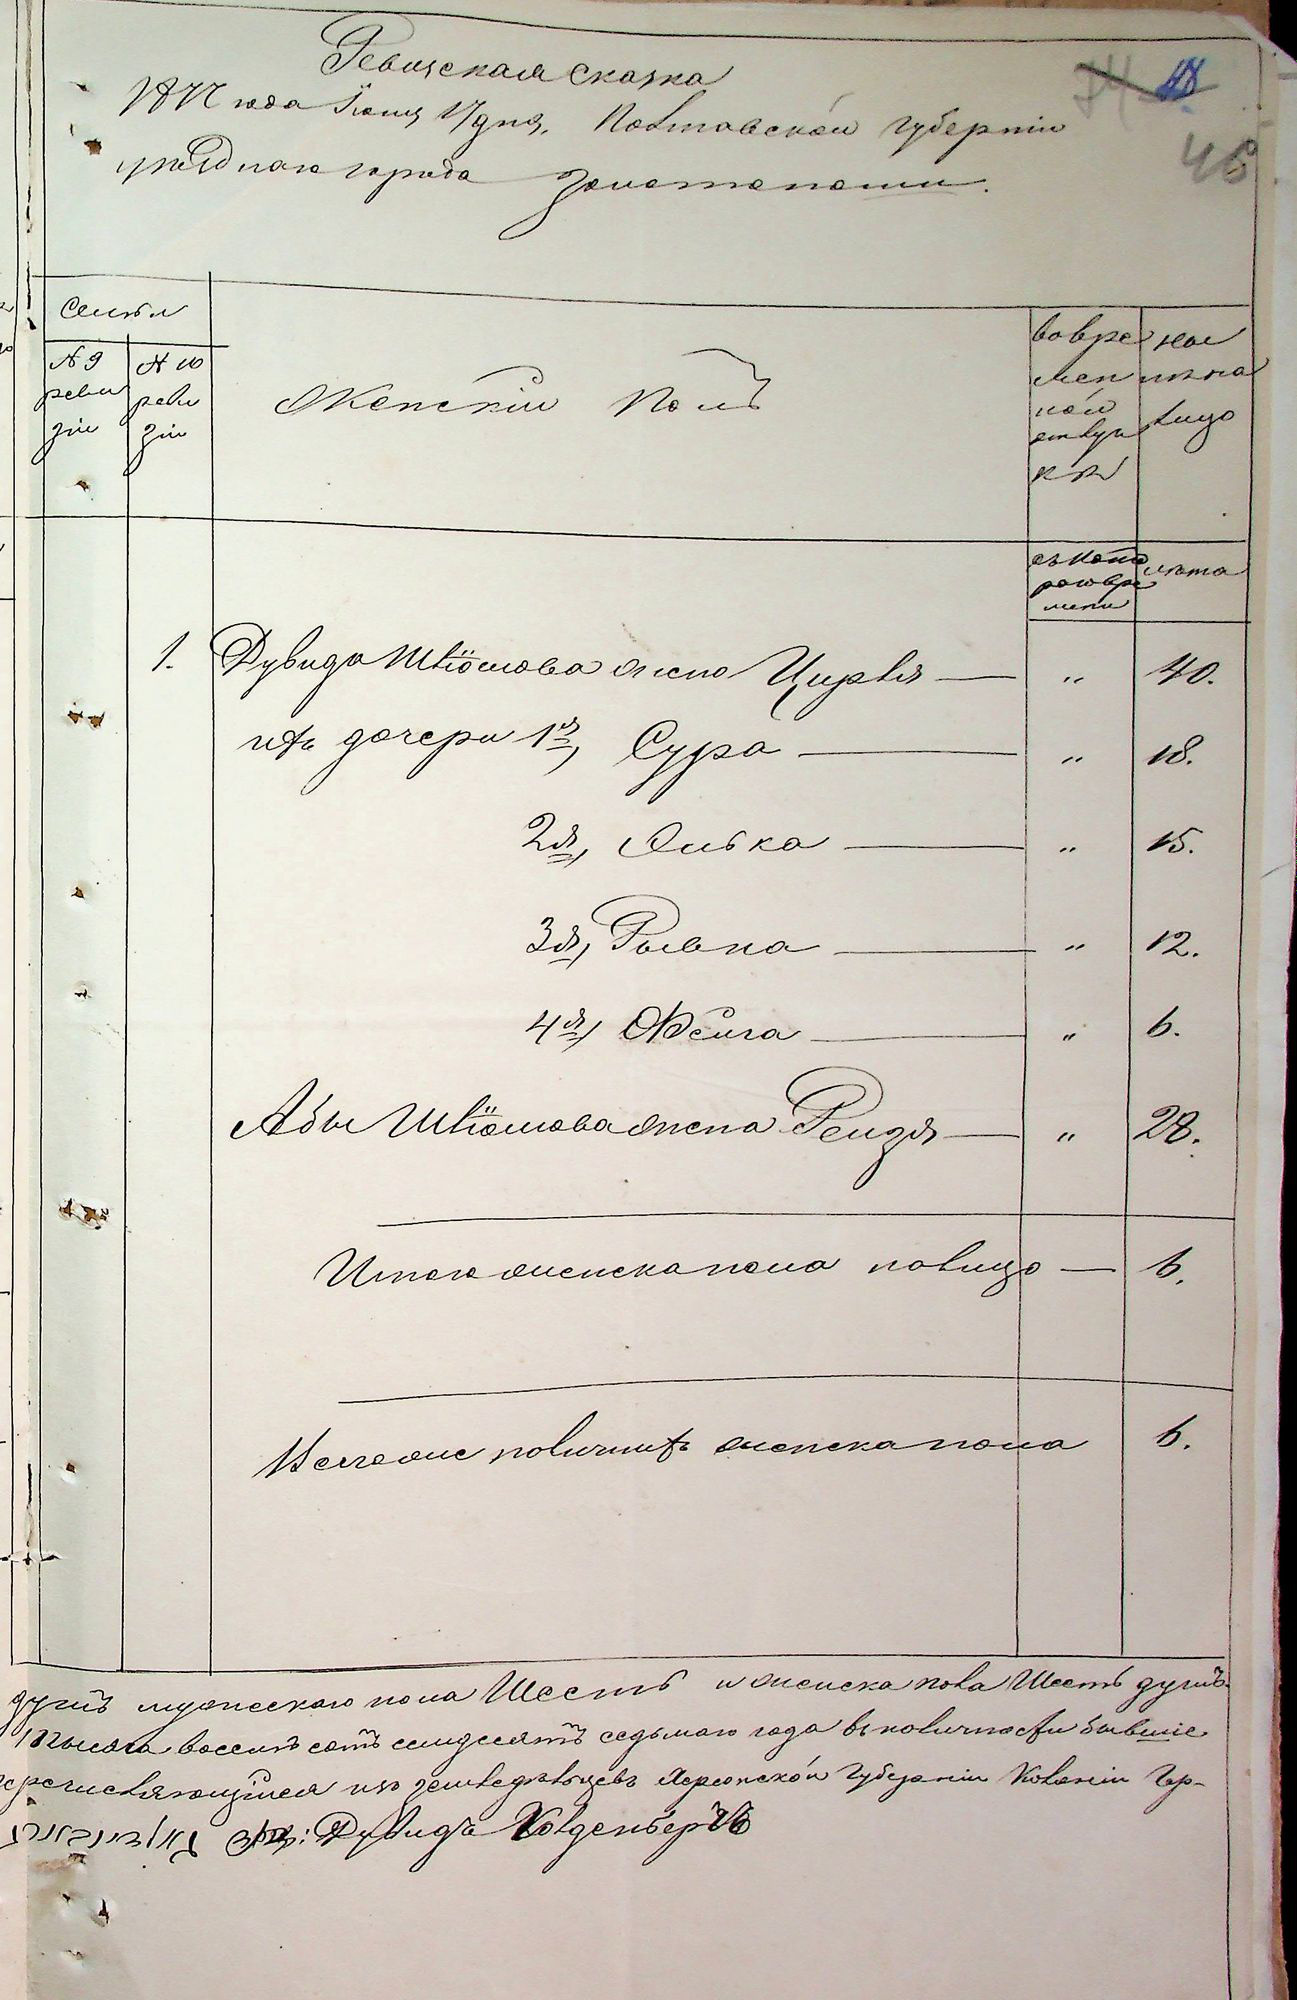 Ревизская сказка
1877 года Іюня 17 дня. Полтавской губерніи
уѣзднаго города Золотоноши.
48
46
Семьи
№ 9 ревизіи
№ 10 ревизіи
Женскій Полъ
во временной отлучкѣ
нынѣ на лицо
съ котораго времени
лѣта
1. Дувида Шліомова жена Цирля — „ 40.
ихъ дочери 1я, Сура — „ 18.
2я, Элька — „ 15.
3я, Рывка — „ 12.
4я, Фейга — „ 6.
Абы Шліомова жена Рейзя — „ 28.
Итого женска пола налицо — 6.
Всего же наличныхъ женска пола 6.
душъ мужескаго пола Шесть и женска пола Шесть душъ.
тысяча восемь сотъ семдесятъ седьмаго года въ наличности бывшіе
перечисляющійся изъ земледѣльцевъ Херсонской Губерніи Колоніи
Дувидъ Голденберг